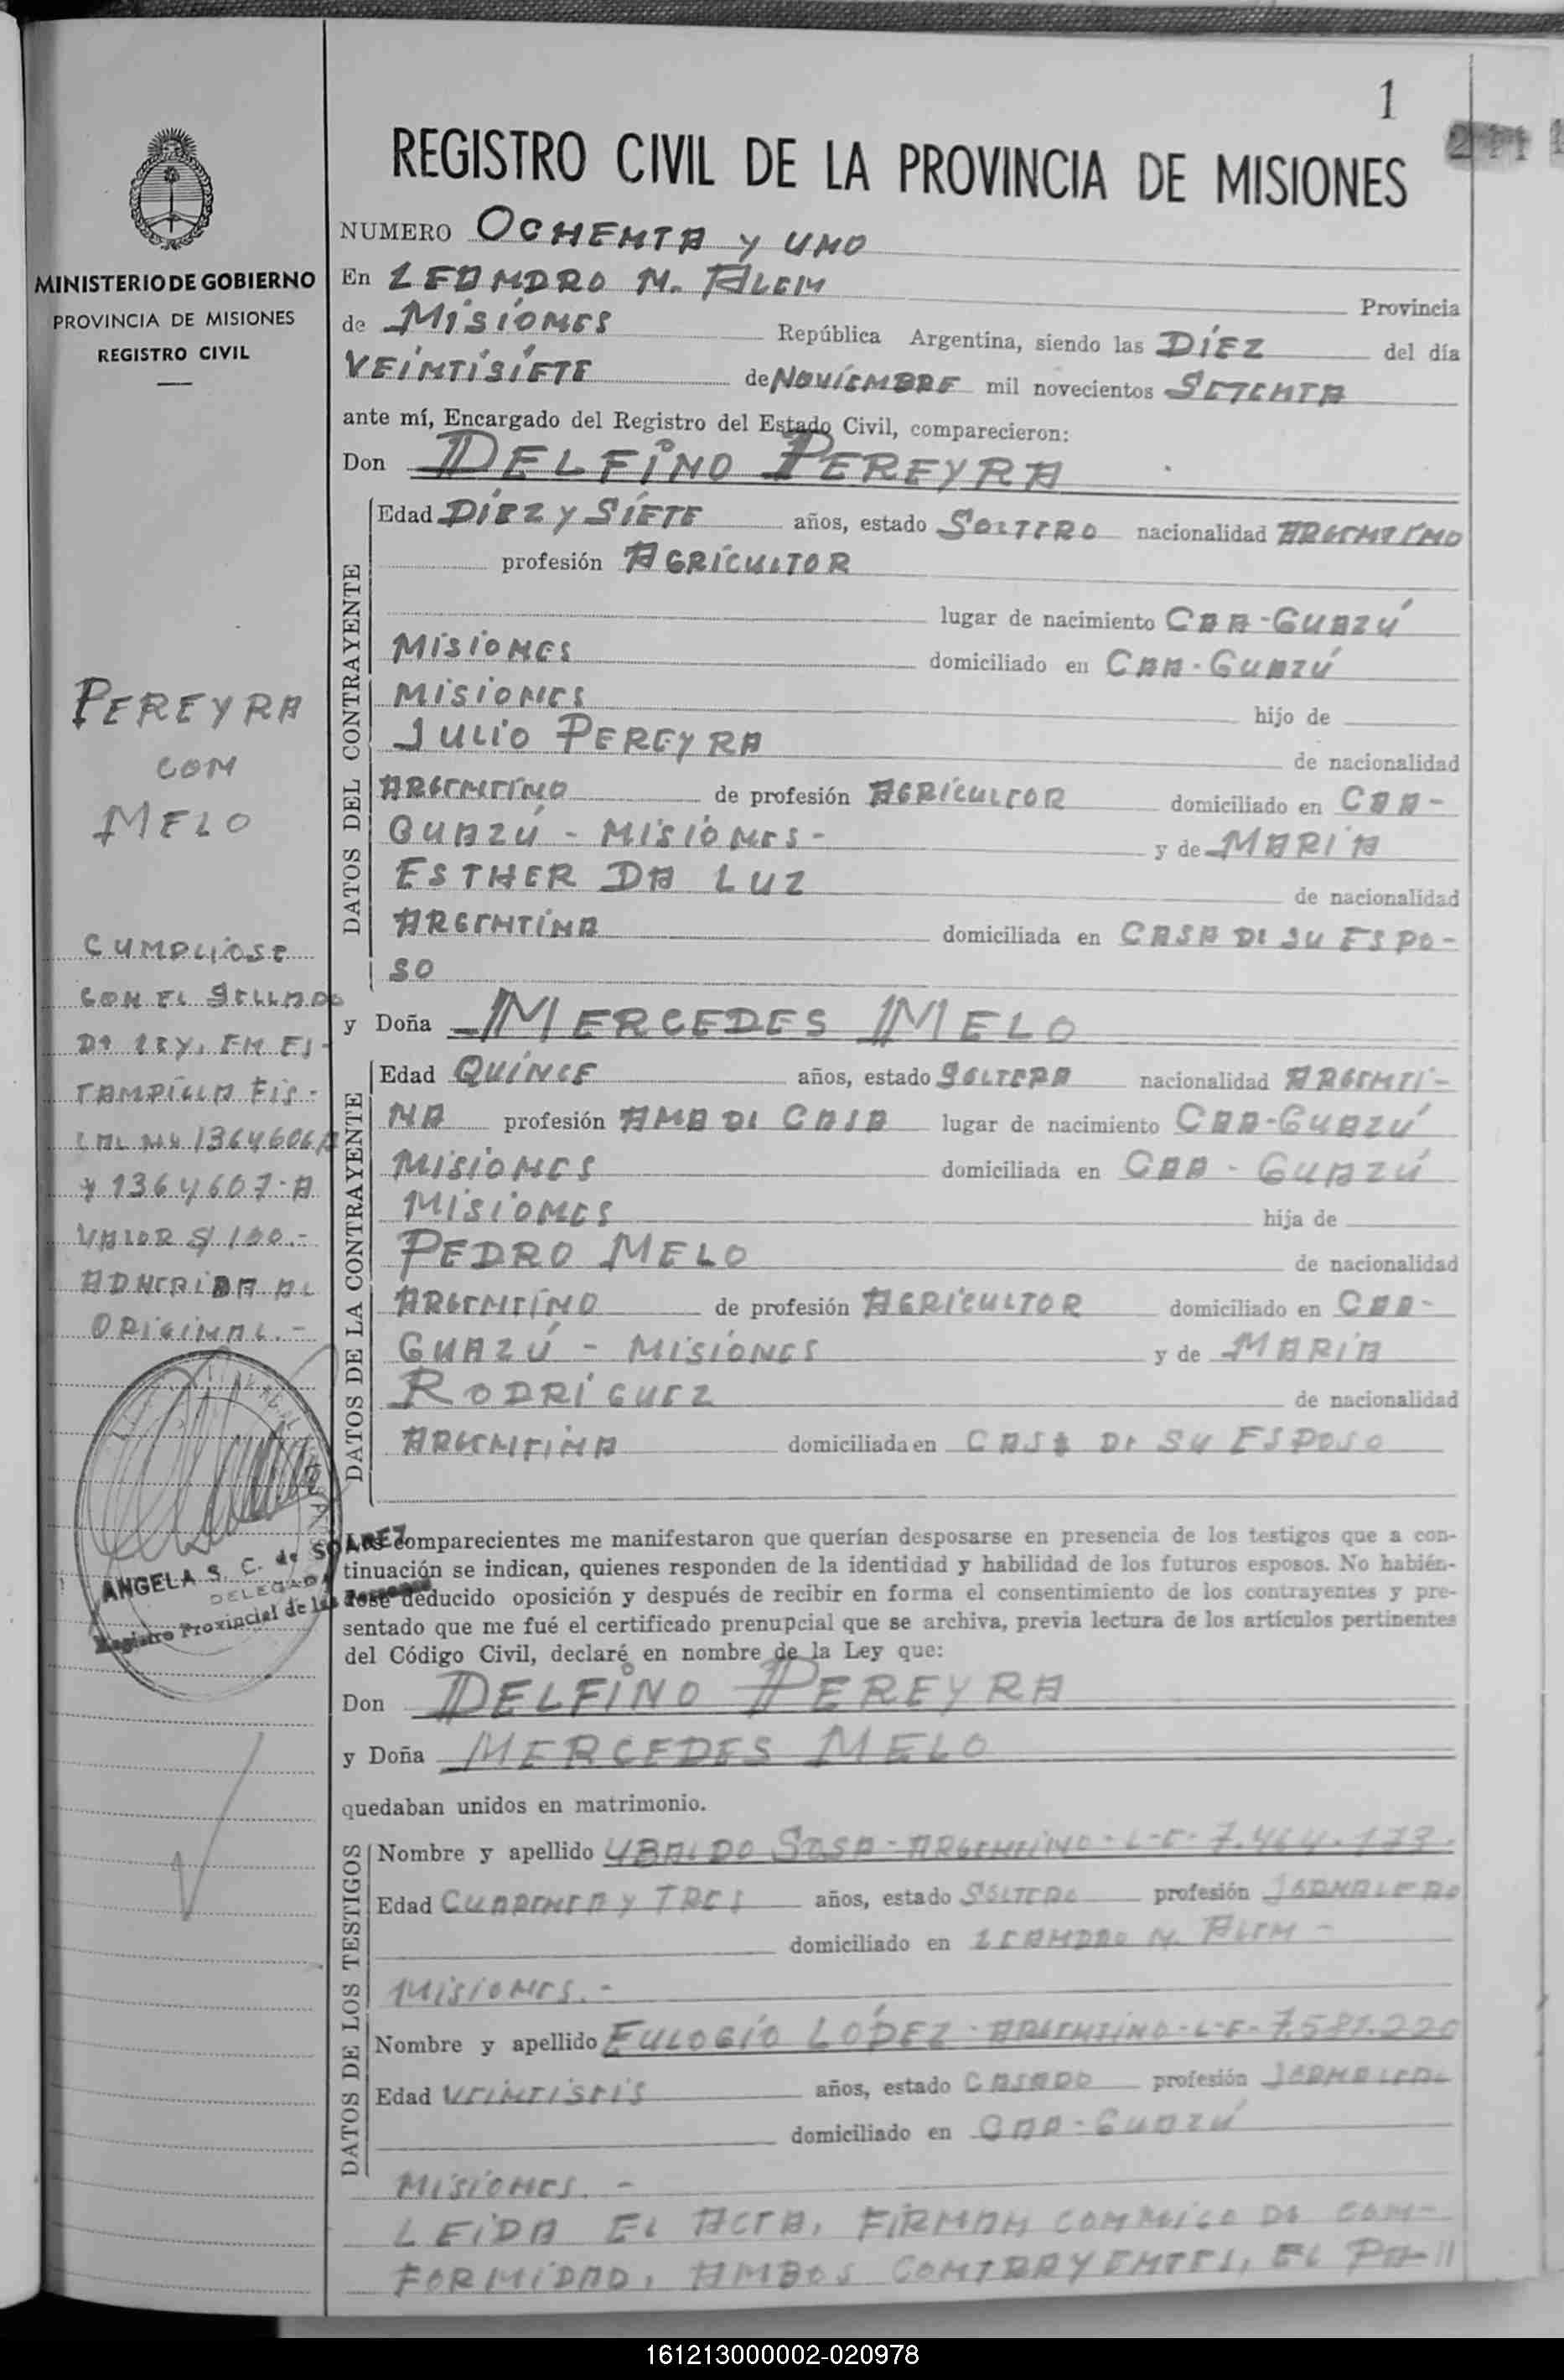 1
REGISTRO CIVIL DE LA PROVINCIA DE MISIONES
MINISTERIO DE GOBIERNO
PROVINCIA DE MISIONES
REGISTRO CIVIL
NUMERO OCHENTA Y UNO
En LEANDRO N. ALEM Provincia
de MISIONES República Argentina, siendo las DIEZ del día
VEINTISIETE de NOVIEMBRE mil novecientos SETENTA
ante mí, Encargado del Registro del Estado Civil, comparecieron:
Don DELFINO PEREYRA
DATOS DEL CONTRAYENTE
Edad DIEZ Y SIETE años, estado SOLTERO nacionalidad ARGENTINO
profesión AGRICULTOR
lugar de nacimiento CAA-GUAZÚ
MISIONES domiciliado en CAA-GUAZÚ
MISIONES hijo de
JULIO PEREYRA de nacionalidad
ARGENTINO de profesión AGRICULTOR domiciliado en CAA-
GUAZÚ - MISIONES- y de MARIA
ESTHER DA LUZ de nacionalidad
ARGENTINA domiciliada en CASA DE SU ESPO-
SO
y Doña MERCEDES MELO
DATOS DE LA CONTRAYENTE
Edad QUINCE años, estado SOLTERA nacionalidad ARGENTI-
NA profesión AMA DE CASA lugar de nacimiento CAA-GUAZÚ
MISIONES domiciliada en CAA-GUAZÚ
MISIONES hija de
PEDRO MELO de nacionalidad
ARGENTINO de profesión AGRICULTOR domiciliado en CAA-
GUAZÚ - MISIONES y de MARIA
RODRÍGUEZ de nacionalidad
ARGENTINA domiciliada en CASA DE SU ESPOSO
Los comparecientes me manifestaron que querían desposarse en presencia de los testigos que a con-
tinuación se indican, quienes responden de la identidad y habilidad de los futuros esposos. No habién-
dose deducido oposición y después de recibir en forma el consentimiento de los contrayentes y pre-
sentado que me fué el certificado prenupcial que se archiva, previa lectura de los artículos pertinentes
del Código Civil, declaré en nombre de la Ley que:
Don DELFINO PEREYRA
y Doña MERCEDES MELO
quedaban unidos en matrimonio.
DATOS DE LOS TESTIGOS
Nombre y apellido UBALDO SOSA-ARGENTINO-L-E-7.464.173.
Edad CUARENTA Y TRES años, estado SOLTERO profesión JORNALERO
domiciliado en LEANDRO N. ALEM -
MISIONES.-
Nombre y apellido EULOGIO LÓPEZ-ARGENTINO-L-E-7.581.220
Edad VEINTISEIS años, estado CASADO profesión JORNALERO
domiciliado en CAA-GUAZÚ
MISIONES.-
LEIDA EL ACTA, FIRMAN CONMIGO DE CON-
FORMIDAD, AMBOS CONTRAYENTES, EL PA-//
PEREYRA
CON
MELO
CUMPLIOSE
CON EL SELLADO
DE LEY, EN ES-
TAMPILLA FIS-
CAL Nos 1364606/A
Y 1364607-A
VALOR $ 100.-
ADHERIDA AL
ORIGINAL.-
ANGELA S. C. de SOAREZ
DELEGADA
Registro Provincial de las Personas
161213000002-020978